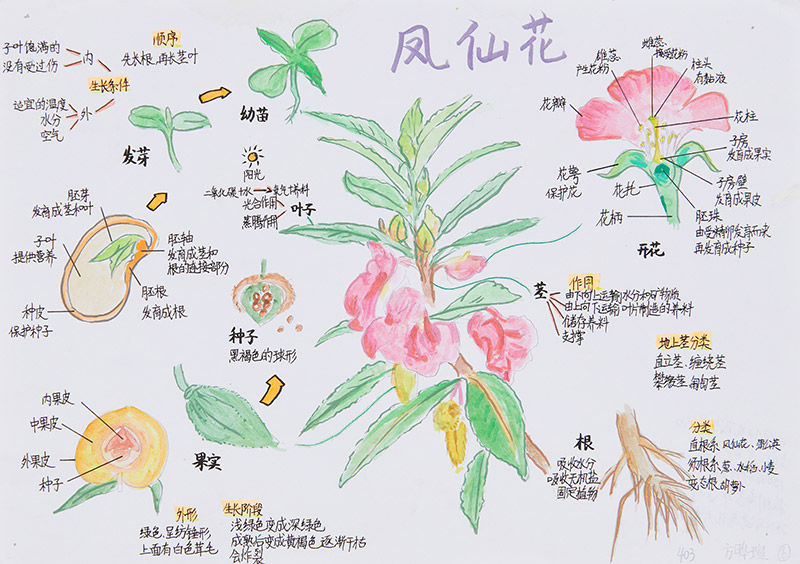 凤仙花
顺序
先长根，再长茎叶
子叶饱满的
没有受过伤
内
生长条件
外
适宜的温度
水分
空气
发芽
幼苗
阳光
二氧化碳+水
氧气+养料
光合作用
蒸腾作用
叶子
胚芽
发育成茎和叶
子叶
提供营养
胚轴
发育成茎和
根的连接部分
胚根
发育成根
种皮
保护种子
种子
黑褐色的球形
内果皮
中果皮
外果皮
种子
果实
外形
绿色，呈纺锤形
上面有白色茸毛
生长阶段
浅绿色变成深绿色
成熟后变成黄褐色，逐渐干枯
会炸裂
雌蕊：
接受花粉
雄蕊：
产生花粉
柱头
有黏液
花瓣
花柱
子房
发育成果实
花萼
保护花
子房壁
发育成果皮
花托
花柄
胚珠
由受精卵发育而来
再发育成种子
开花
茎
作用
由下向上运输水分和矿物质
由上向下运输叶片制造的养料
储存养料
支撑
地上茎分类
直立茎、缠绕茎
攀缘茎、匍匐茎
根
吸收水分
吸收无机盐
固定植物
分类
直根系：凤仙花、蒲公英
须根系：葱、水稻、小麦
变态根：胡萝卜
403